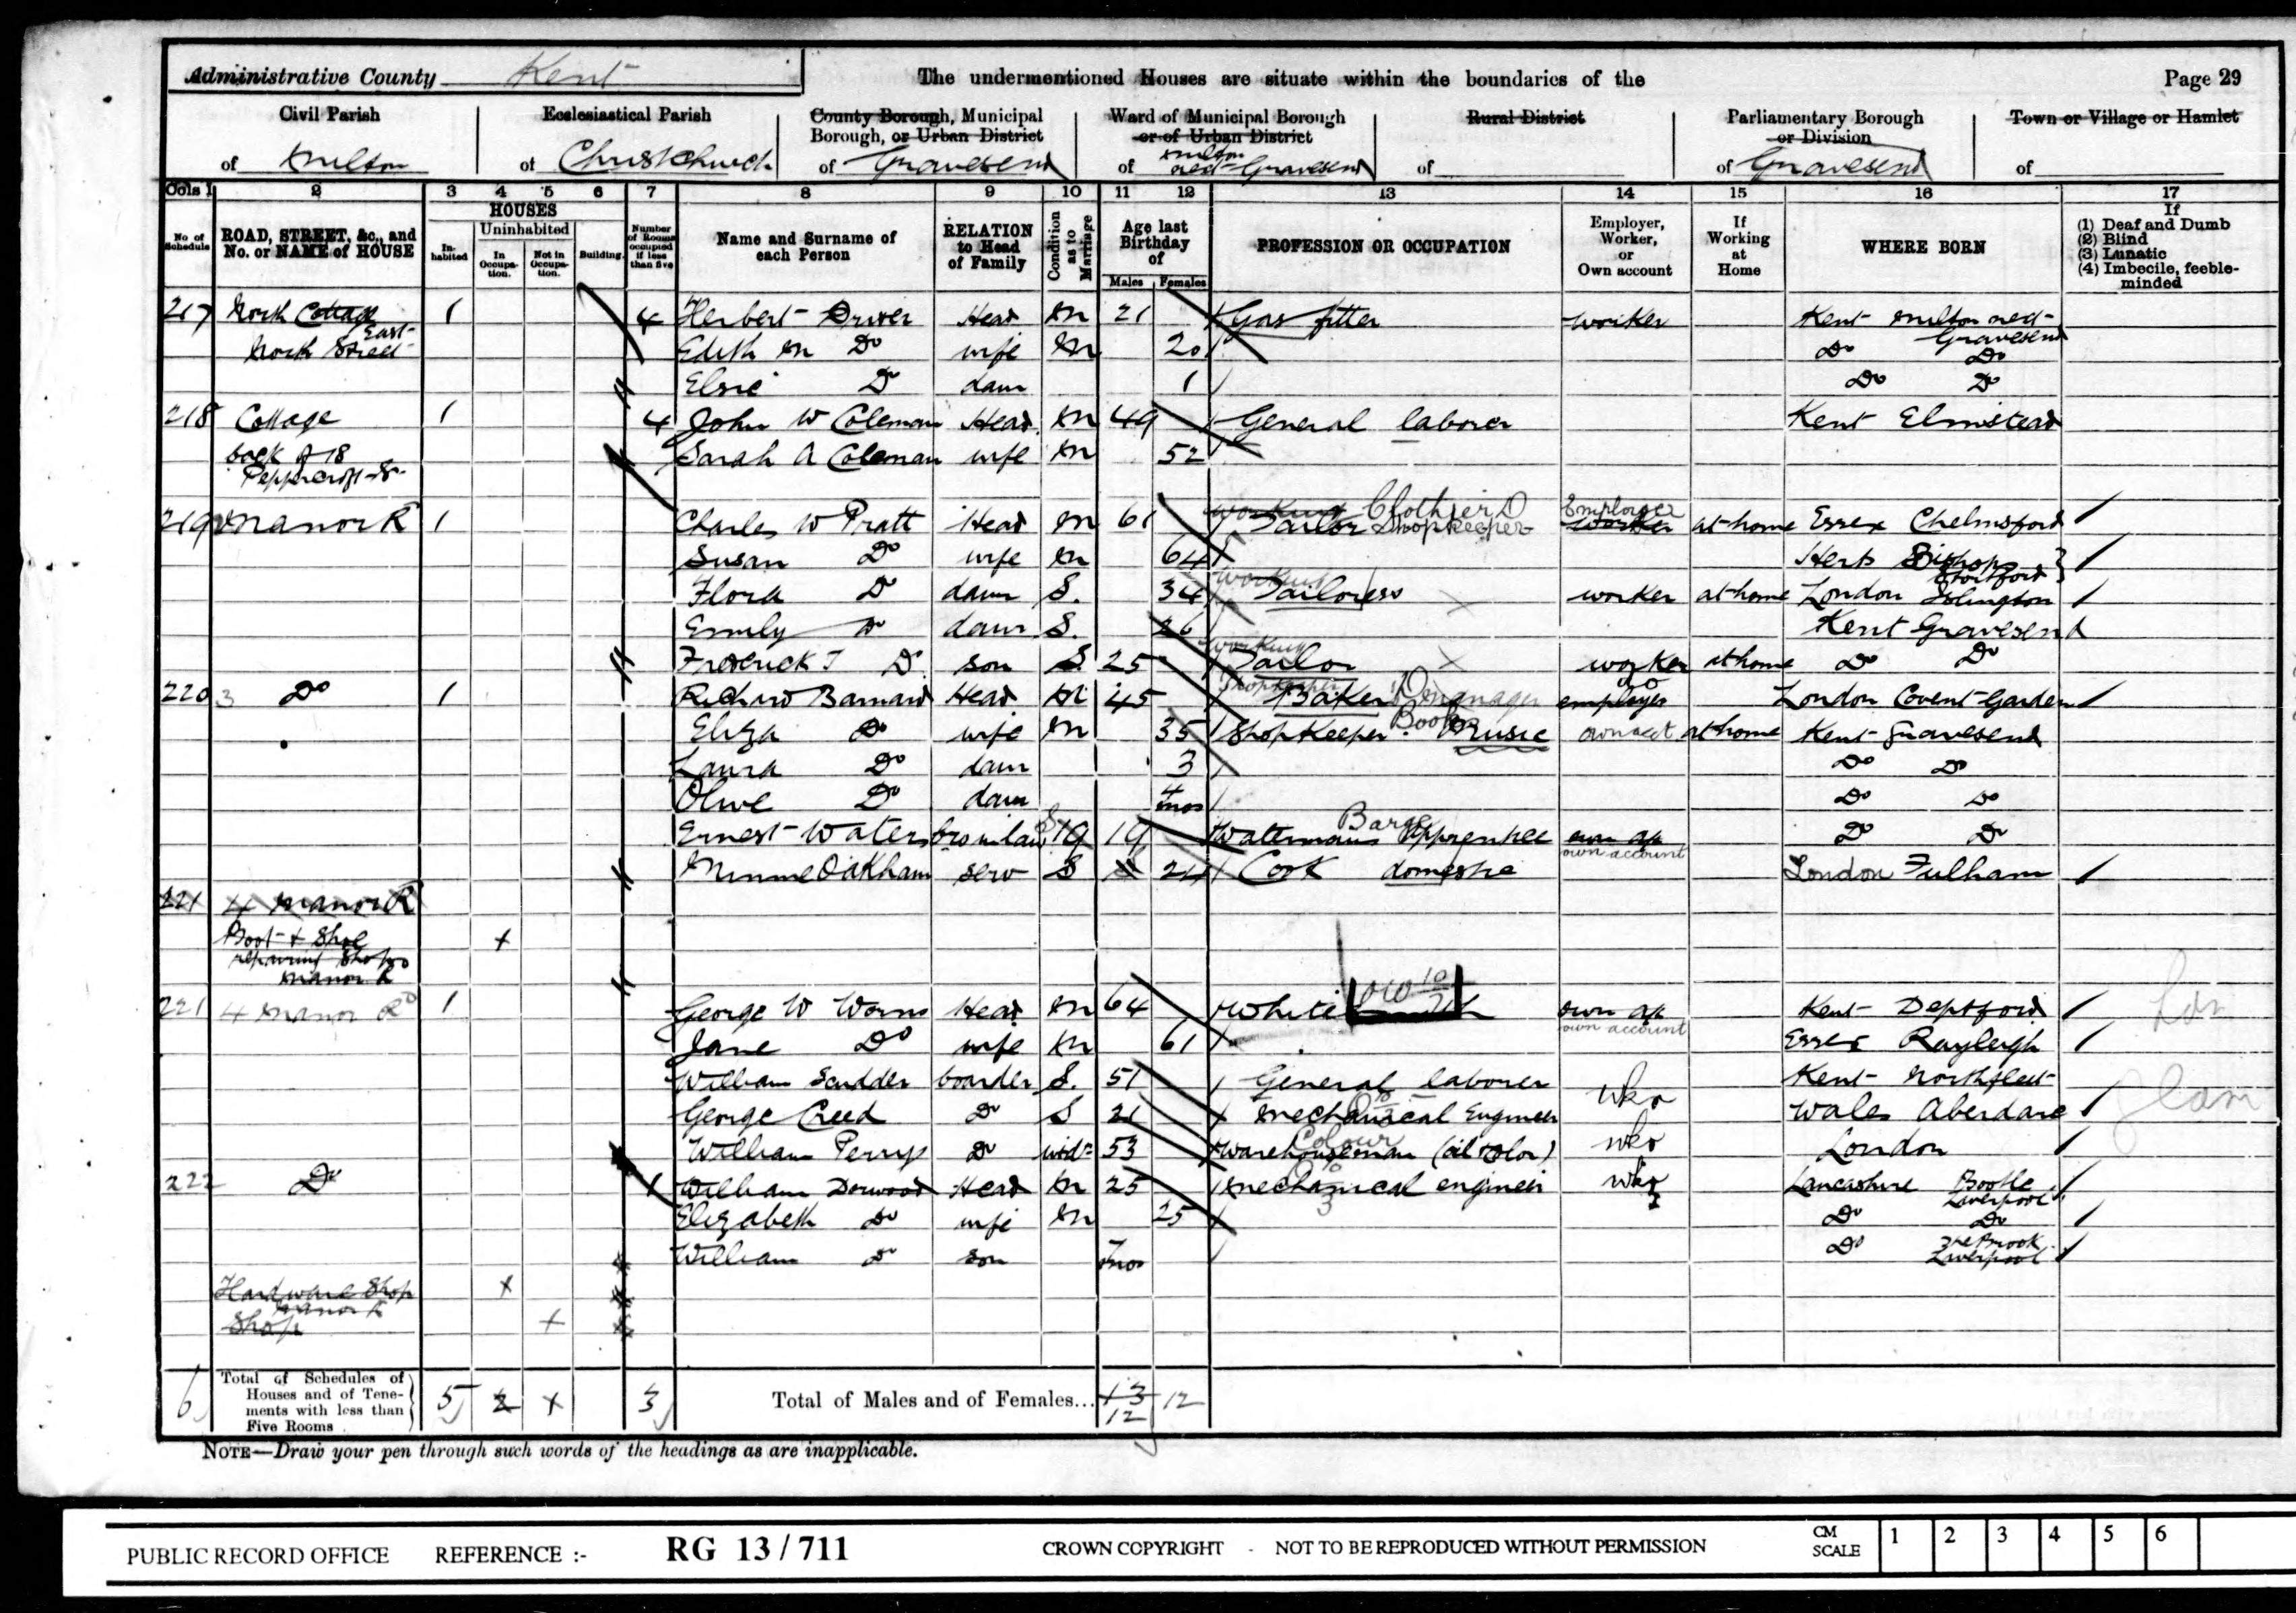 Administrative County Kent The undermentioned Houses are situate within the boundaries of the Page 29
Civil Parish Ecclesiastical Parish County Borough, Municipal Borough, or Urban District Ward of Municipal Borough or of Urban District Rural District Parliamentary Borough or Division Town or Village or Hamlet
of Milton of Christchurch of Gravesend of Milton next Gravesend of of Gravesend of
Cols 1 2 3 4 5 6 7 8 9 10 11 12 13 14 15 16 17
No of Schedule ROAD, STREET, &c., and No. or NAME of HOUSE HOUSES In-habited Uninhabited In Occupa-tion. Not in Occupa-tion. Building. Number of Rooms occupied if less than five Name and Surname of each Person RELATION to Head of Family Condition as to Marriage Age last Birthday of Males Females PROFESSION OR OCCUPATION Employer, Worker, or Own account If Working at Home WHERE BORN If (1) Deaf and Dumb (2) Blind (3) Lunatic (4) Imbecile, feeble-minded
217 York Cottage 1 4 Herbert Driver Head M 21 Gas fitter worker Kent Milton next Gravesend
East York Street Edith M Do wife M 20 Do Do
Elsie Do daur 1 Do Do
218 Cottage 1 4 John W Coleman Head M 49 General laborer Kent Elmstead
back of 18 Sarah A Coleman wife M 52
Peppercroft St
219 Manor R 1 Charles W Pratt Head M 61 working Tailor Clothier D Shopkeeper Employer worker at home Essex Chelmsford
Susan Do wife M 64 Herts Bishop Stortford
Flora Do daur S. 34 working Tailoress worker at home London Islington
Emily Do daur S. 26 Kent Gravesend
Frederick J Do son S. 25 working Tailor worker at home Do Do
220 3 Do 1 Richard Barnard Head M 45 Shopkeeper Baker D manager employer London Covent Garden
Eliza Do wife M 35 Shopkeeper Book Music own acct at home Kent Gravesend
Laura Do daur 3 Do Do
Olive Do daur 4 mos Do Do
Ernest Waters bro in law S 19 19 Watermans Barge Apprentice own ac Do Do
Minnie Oakham serv S 24 Cook domestic own account London Fulham
221 4 Manor R
Boot & Shoe
repairing Shop
Manor R
221 4 Manor Rd 1 George W Worns Head M 64 Whitesmith own ac Kent Deptford Lon
Jane Do wife M 61 own account Essex Rayleigh
William Scudder boarder S. 51 General laborer Kent Northfleet
George Creed Do S 21 Mechanical Engineer wkr Wales Aberdare Glam
William Perry Do widr 53 Warehouseman (oil & color) Colour wkr London
222 Do 1 William Dorwood Head M 25 Mechanical engineer wkr Lancashire Bootle Liverpool
Elizabeth Do wife M 25 Do Do
William Do son 7 mos Do Liverpool
Hardware Shop
Manor R
Shop
6 Total of Schedules of Houses and of Tene-ments with less than Five Rooms 5 2 3 Total of Males and of Females... 13 12 12
NOTE—Draw your pen through such words of the headings as are inapplicable.
PUBLIC RECORD OFFICE REFERENCE :- RG 13 / 711 CROWN COPYRIGHT - NOT TO BE REPRODUCED WITHOUT PERMISSION CM SCALE 1 2 3 4 5 6